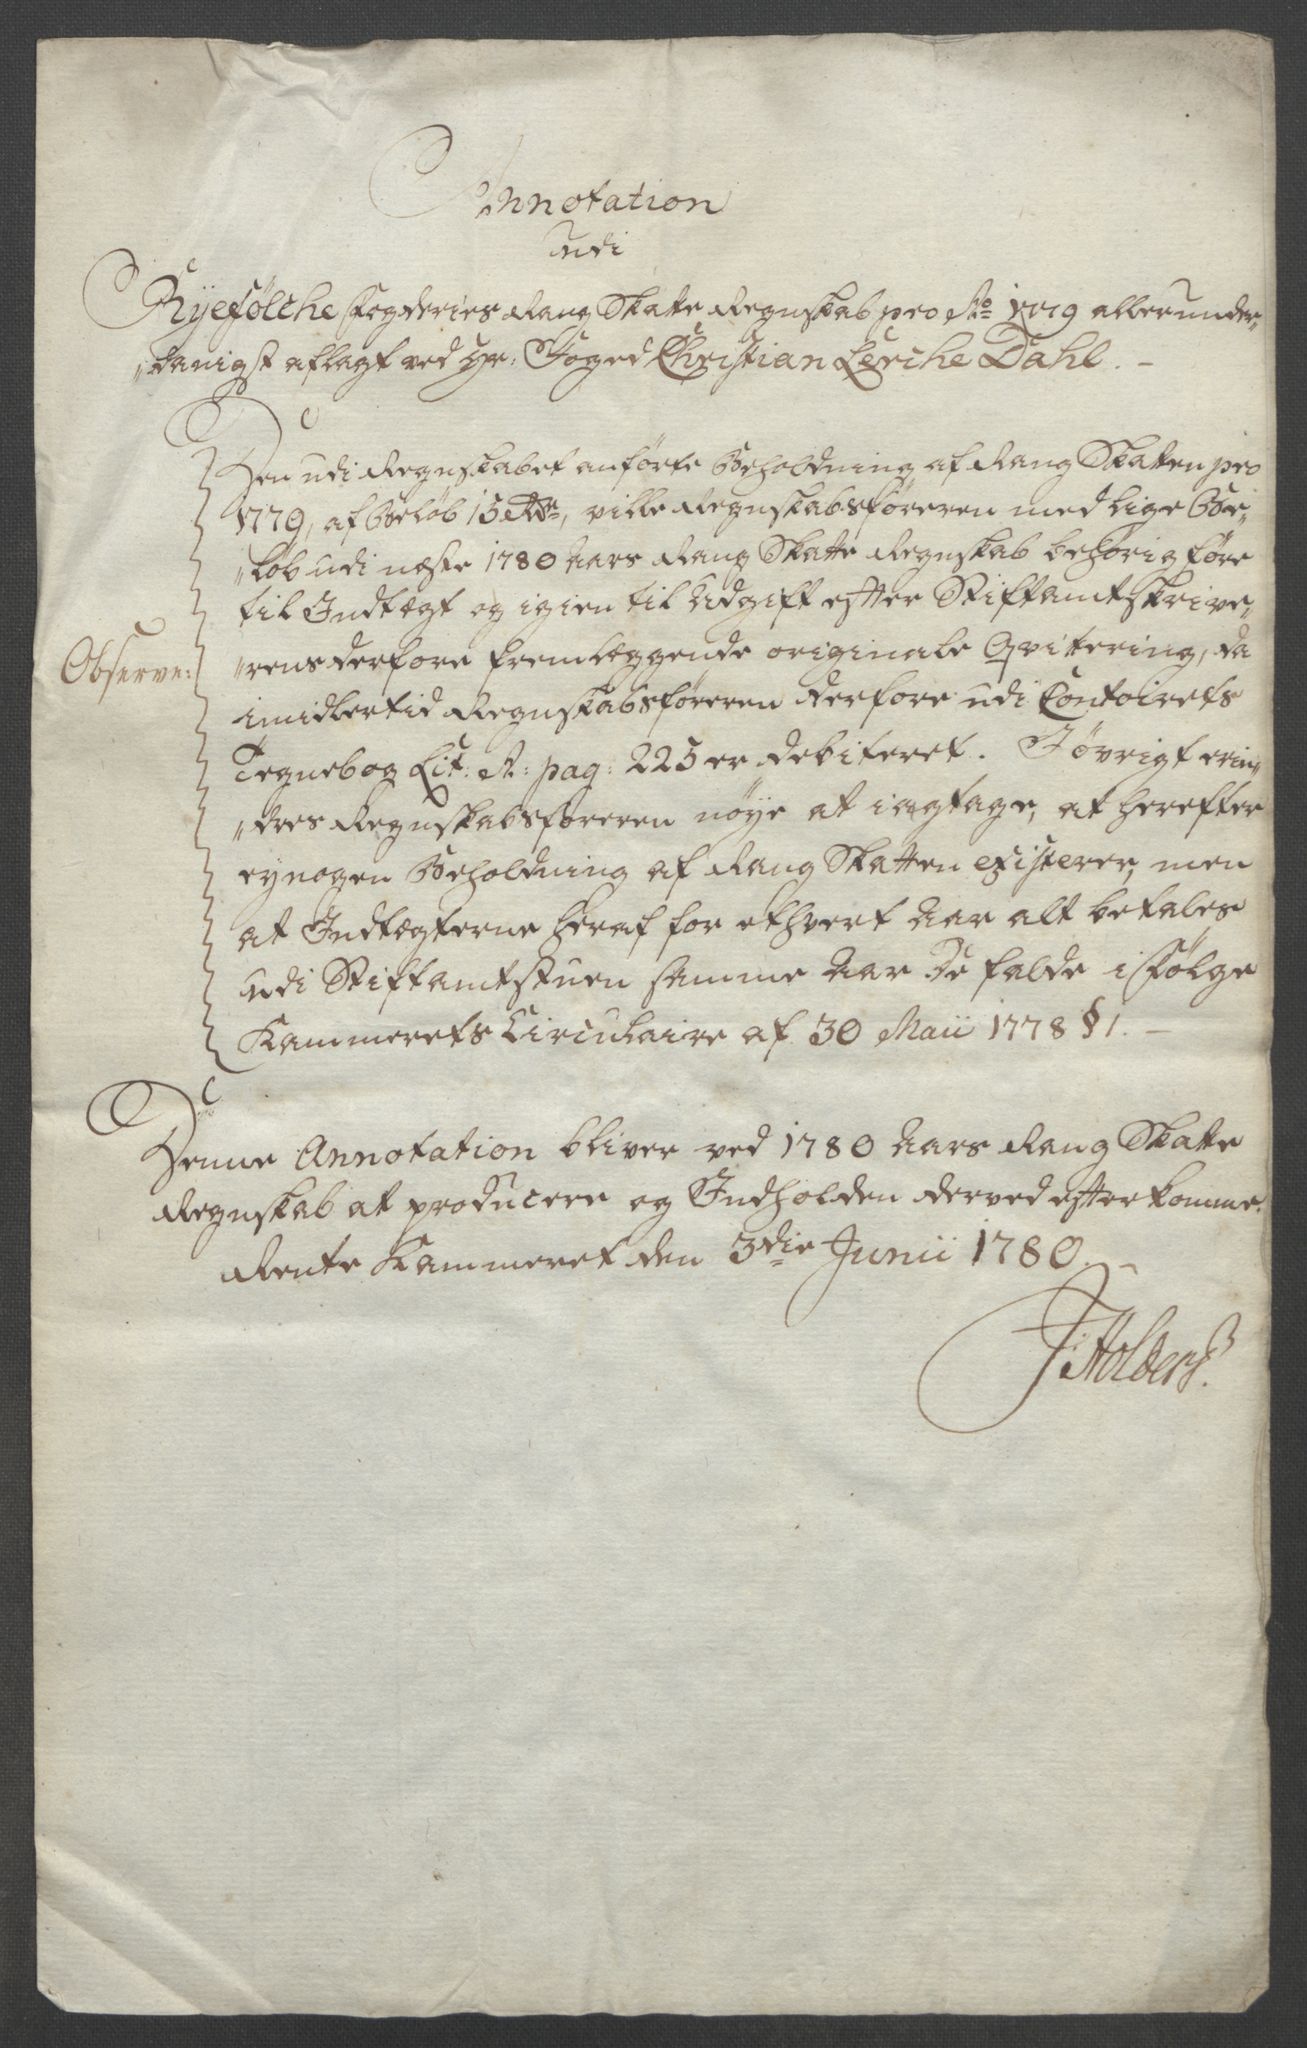 Annotation
udi
Ryefölche Fogderies Rang Skatte Regnskab pro Ao 1779 allerunder„
„danigst aflagt ved Hr: Foged Christian Lerche Dahl. –
Den udi Regnskabet anförte Beholdning af Rang Skatten pro
1779, af Belöb 15 Rdr, ville Regnskabsföreren med lige Be„
„löb udi næste 1780 Aars Rang Skatte Regnskab behörig före
til Indtægt og igien til Udgift efter Stiftamtskrive„
Observe:
„rens derfore fremlæggende originale Qvittering, da
imidlertid Regnskabsföreren derfore udi Contoirets
Tegnebog Lit: A: pag: 225 er debiteret. Jövrigt erin„
„dres Regnskabsföreren nöye at iagtage, at herefter
ey nogen Beholdning af Rang Skatten existerer, men
at Indtægterne heraf for ethvert Aar alt betales
udi Stiftamtstuen samme Aar de falde ifölge
Kammerets Circulaire af 30 Maii 1778 § 1. –
Denne Annotation bliver ved 1780 Aars Rang Skatte
Regnskab at producere og Indholden derved efterkomme.
Rente Kammeret den 3die Junii 1780. –